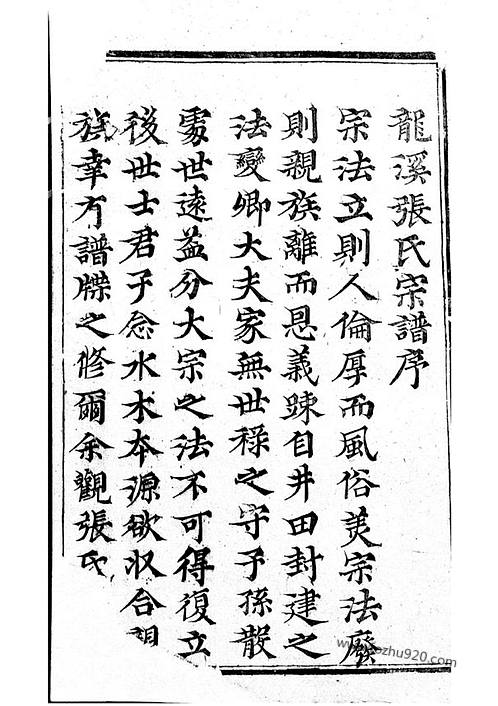 龍溪張氏宗譜序
宗法立則人倫厚而風俗美宗法廢
則親族離而恩義踈自井田封建之
法變卿大夫家無世祿之守子孫散
處世遠益分大宗之法不可得復立
後世士君子念水木本源欲收合
族幸有譜牒之修爾余觀張氏